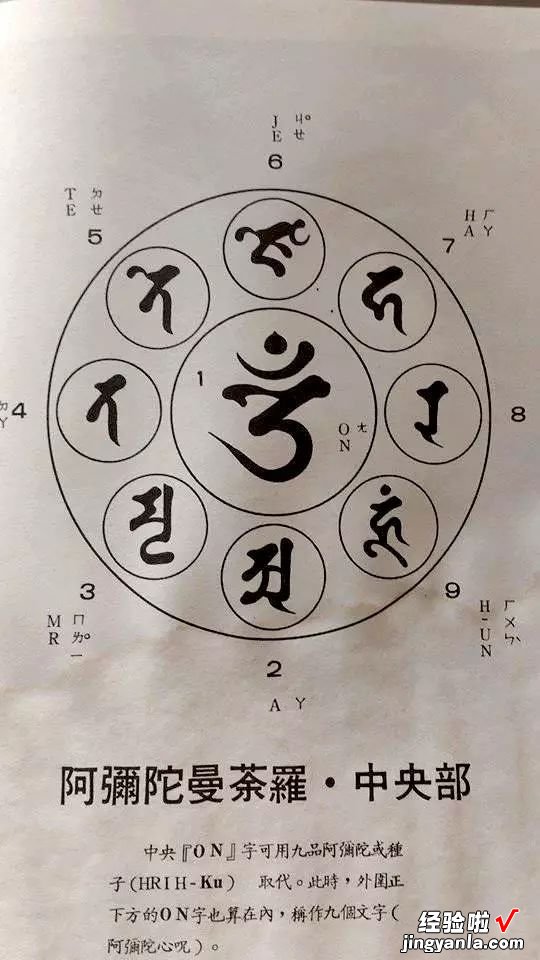 JE ㄐㄝ°
6
TE ㄉㄝ
5
HA ㄏㄚ
7
1
ON ㄤ
ㄚ 4
8
3
9
MR ㄇㄌ°ㄧ
H-UN ㄏㄨㄣ
2
A ㄚ
阿彌陀曼荼羅·中央部
中央『ON』字可用九品阿彌陀或種
子(HRIH-Ku) 取代。此時,外圍正
下方的ON字也算在內,稱作九個文字(
阿彌陀心呪)。
经验啦√
jingyanla.com